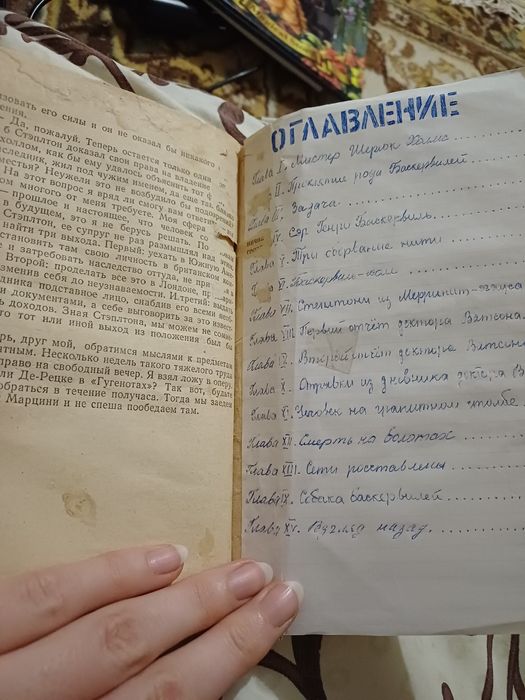 изовать его силы и он не оказал бы никакого
ния.
Да, пожалуй. Теперь остается только одна
б Стэплтон доказал свои права на владение
холлом, как бы ему удалось объяснить тот
следник, жил под чужим именем, да еще так близко
местья? Неужели это не возбудило бы подозрений
На этот вопрос я вряд ли смогу вам ответить
ом многого от меня требуете. Моя сфера
прошлое и настоящее, что человек со
в будущем, это я не берусь решать. По
Стэплтон, ее супруг не раз размышлял над
найти три выхода. Первый: уехать в Южную
становить там свою личность в британском кон
и затребовать наследство оттуда, не при
Второй: проделать все это в Лондоне,
изменив себя до неузнаваемости. И третий: надать
дника подставное лицо, снабдив его всеми
и документами, а себе выговорить за это извест
ь доходов. Зная Стэплтона, мы можем не сомне
то тот или иной выход из положения был бы
рь, друг мой, обратимся мыслями к предметам
ятным. Несколько недель такого тяжелого труда
право на свободный вечер. Я взял ложу в оперу.
ли Де-Рецке в «Гугенотах»? Так вот, будьте
обраться в течение получаса. Тогда мы заедем
Марцини и не спеша пообедаем там.
ОГЛАВЛЕНИЕ
Глава I. Мистер Шерлок Холмс
II. Проклятие рода Баскервилей
Глава III. Задача
IV. Сэр Генри Баскервиль
Глава V. Три оборванные нити
VI. Баскервиль-холл
Глава VII. Стэплтоны из Меррипит-хауса
Глава VIII. Первый отчёт доктора Уэтсона
Глава IX. Второй отчёт доктора Уэтсона
Глава X. Отрывки из дневника доктора
Глава XI. Человек на гранитном столбе
Глава XII. Смерть на болотах
Глава XIII. Сети расставлены
Глава IX. Собака баскервилей
Глава XV. Взгляд назад.